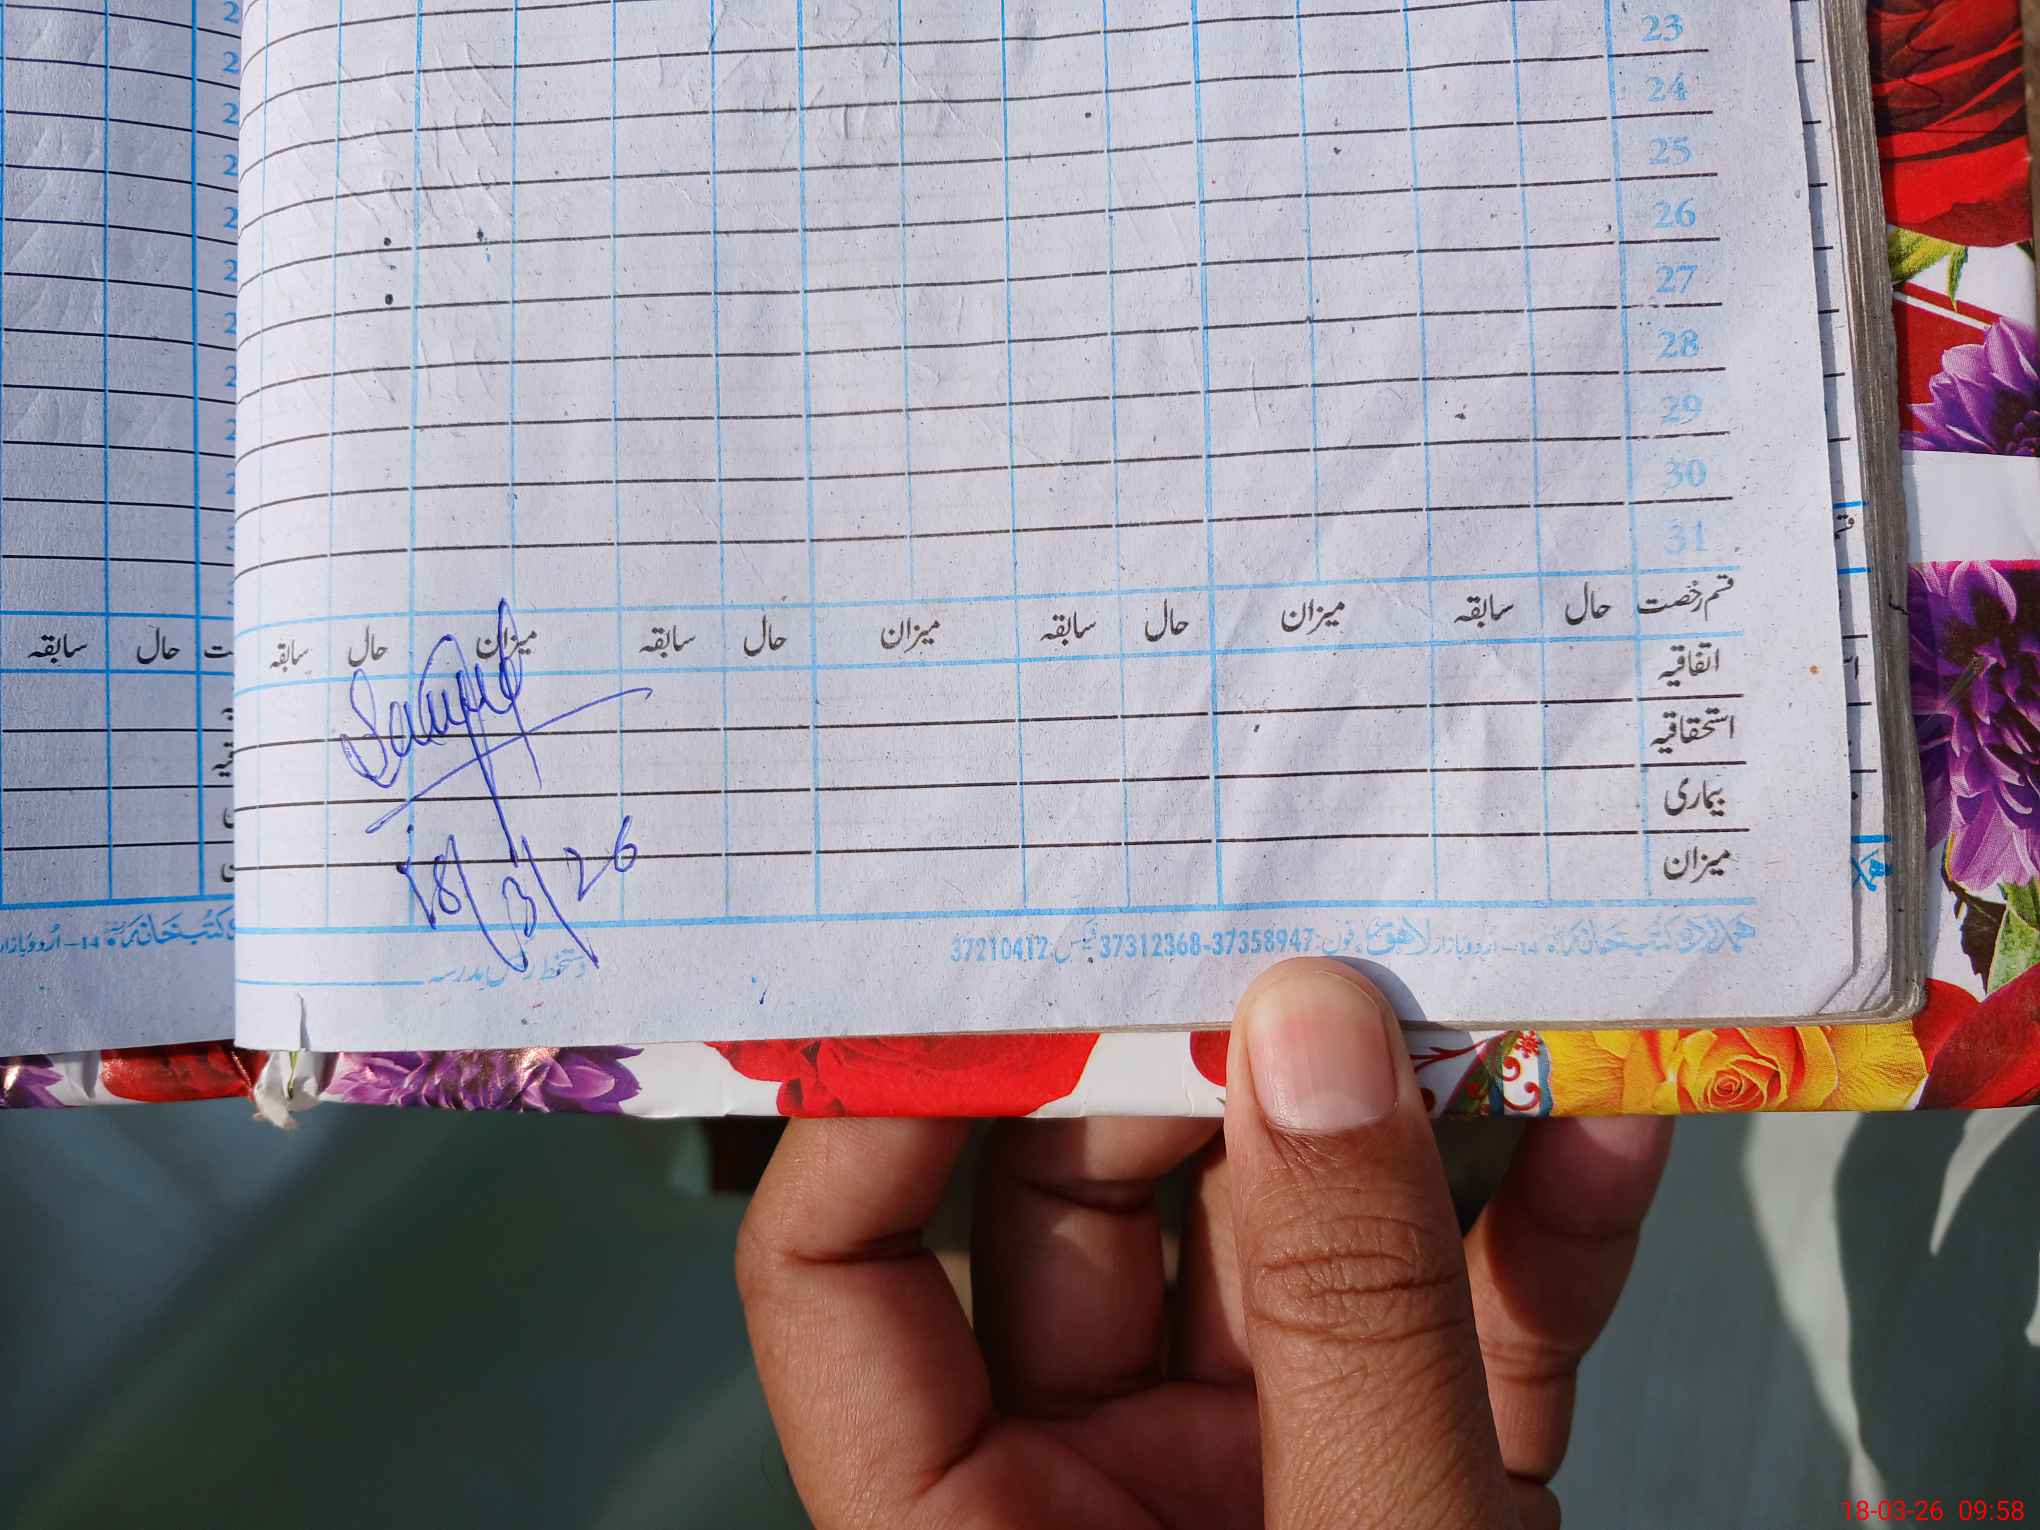 23
24
25
26
27
28
29
30
31
قسم رخصت حال سابقہ میزان حال سابقہ میزان حال سابقہ میزان حال سابقہ
حال سابقہ
اتفاقیہ
استحقاقیہ
بیماری
میزان
18/3/26
ہمدرد کتب خانہ 14- اردو بازار لاہور فون: 37358947-37312368 فیکس: 37210412
کتب خانہ 14- اردو بازار
دستخط رئیس مدرسہ
18-03-26 09:58